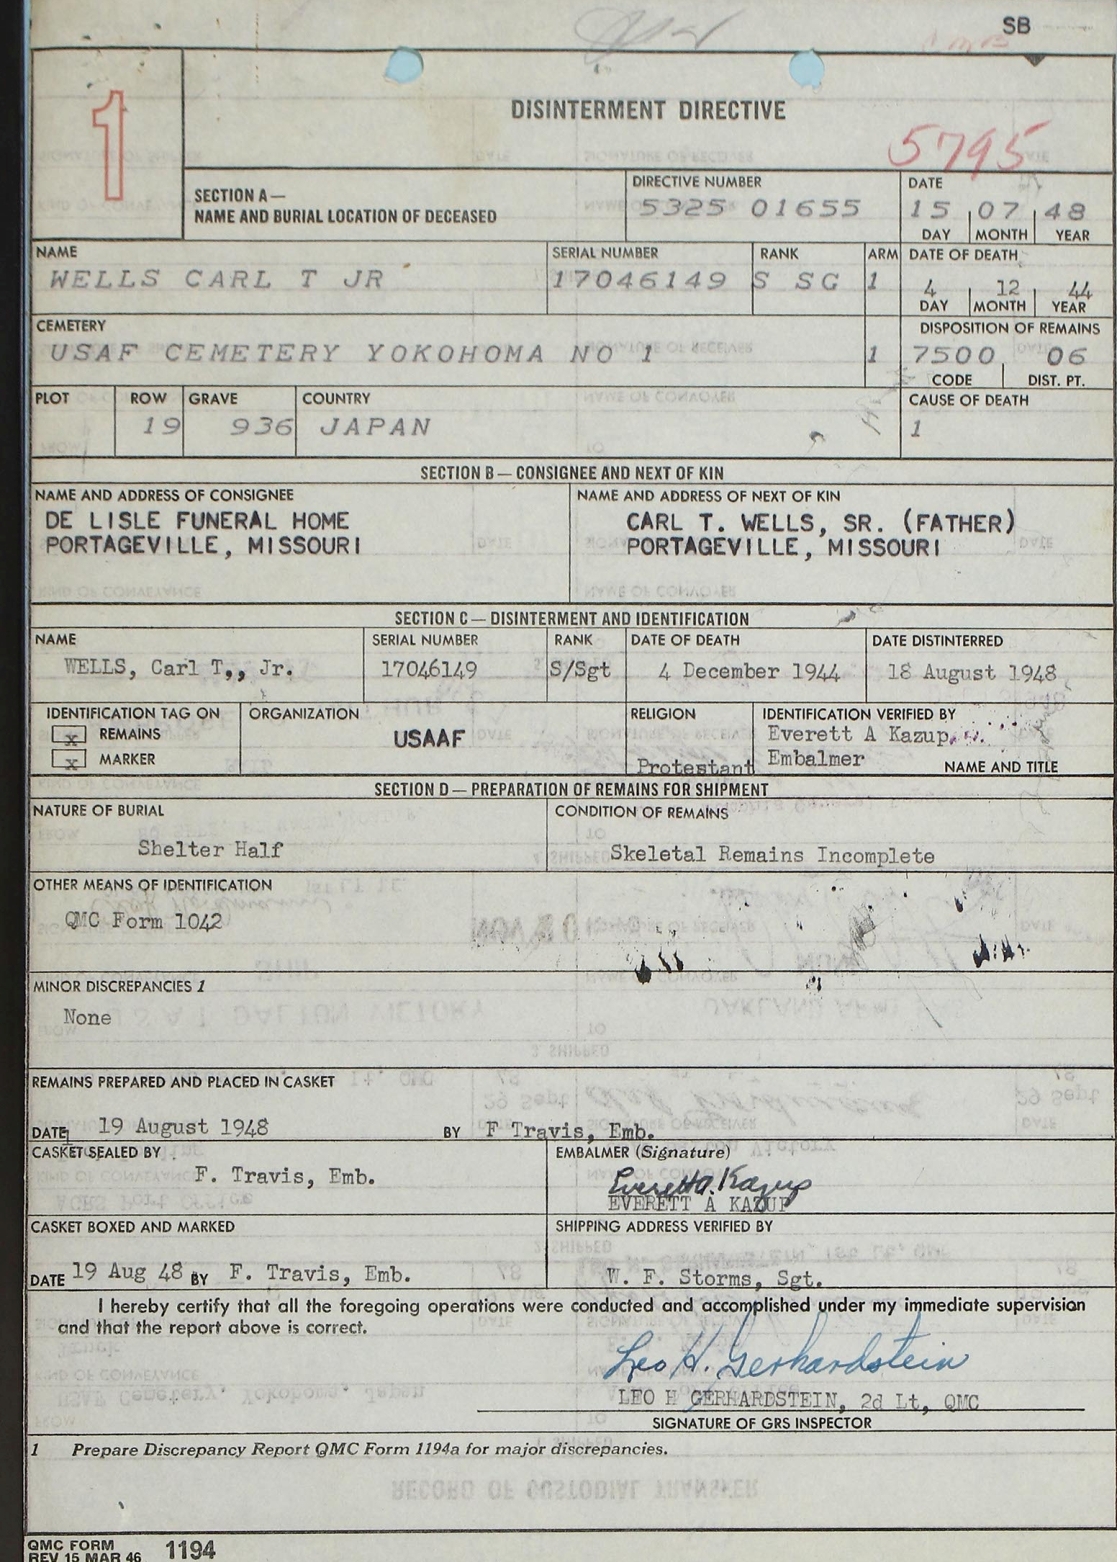 SB
1
DISINTERMENT DIRECTIVE
5795
SECTION A—
NAME AND BURIAL LOCATION OF DECEASED
DIRECTIVE NUMBER
5325 01655
DATE
15 07 48
DAY MONTH YEAR
NAME
WELLS CARL T JR
SERIAL NUMBER
17046149
RANK
S SG
ARM
1
DATE OF DEATH
4 12 44
DAY MONTH YEAR
CEMETERY
USAF CEMETERY YOKOHOMA NO 1
1
DISPOSITION OF REMAINS
7500 06
CODE DIST. PT.
PLOT
ROW
19
GRAVE
936
COUNTRY
JAPAN
CAUSE OF DEATH
1
SECTION B—CONSIGNEE AND NEXT OF KIN
NAME AND ADDRESS OF CONSIGNEE
DE LISLE FUNERAL HOME
PORTAGEVILLE, MISSOURI
NAME AND ADDRESS OF NEXT OF KIN
CARL T. WELLS, SR. (FATHER)
PORTAGEVILLE, MISSOURI
SECTION C—DISINTERMENT AND IDENTIFICATION
NAME
WELLS, Carl T,, Jr.
SERIAL NUMBER
17046149
RANK
S/Sgt
DATE OF DEATH
4 December 1944
DATE DISTINTERRED
18 August 1948
IDENTIFICATION TAG ON
x REMAINS
x MARKER
ORGANIZATION
USAAF
RELIGION
Protestant
IDENTIFICATION VERIFIED BY
Everett A Kazup
Embalmer
NAME AND TITLE
SECTION D—PREPARATION OF REMAINS FOR SHIPMENT
NATURE OF BURIAL
Shelter Half
CONDITION OF REMAINS
Skeletal Remains Incomplete
OTHER MEANS OF IDENTIFICATION
QMC Form 1042
MINOR DISCREPANCIES 1
None
REMAINS PREPARED AND PLACED IN CASKET
DATE 19 August 1948 BY F Travis, Emb.
CASKET SEALED BY
F. Travis, Emb.
EMBALMER (Signature)
Everett A. Kazup
EVERETT A KAZUP
CASKET BOXED AND MARKED
DATE 19 Aug 48 BY F. Travis, Emb.
SHIPPING ADDRESS VERIFIED BY
W. F. Storms, Sgt.
I hereby certify that all the foregoing operations were conducted and accomplished under my immediate supervision
and that the report above is correct.
Leo H. Gerhardstein
LEO H GERHARDSTEIN, 2d Lt, QMC
SIGNATURE OF GRS INSPECTOR
1 Prepare Discrepancy Report QMC Form 1194a for major discrepancies.
QMC FORM
REV 15 MAR 46 1194